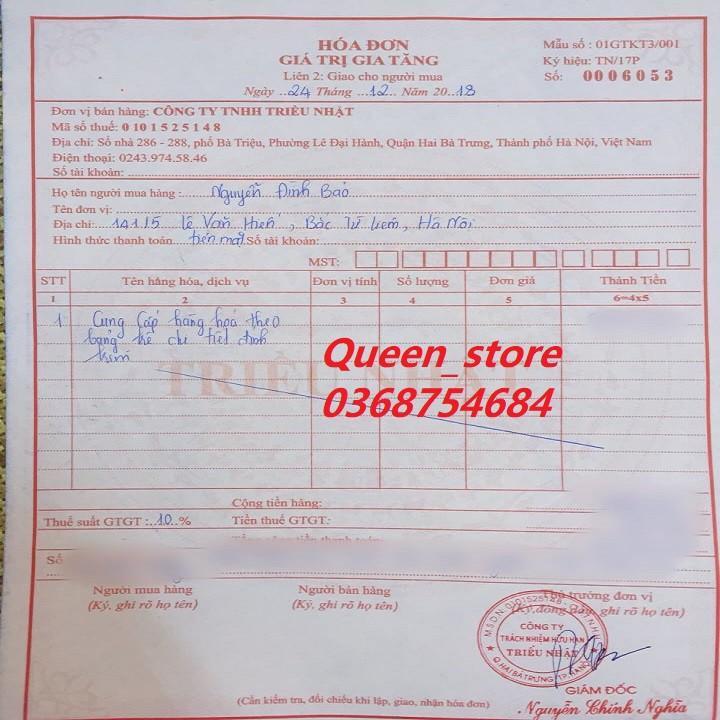 HÓA ĐƠN
GIÁ TRỊ GIA TĂNG
Liên 2: Giao cho người mua
Ngày ..24 Tháng ..12.. Năm 20.18
Mẫu số : 01GTKT3/001
Ký hiệu: TN/17P
Số: 0006053
Đơn vị bán hàng: CÔNG TY TNHH TRIỀU NHẬT
Mã số thuế: 0 101 5 2 5 1 4 8
Địa chỉ: Số nhà 286 - 288, phố Bà Triệu, Phường Lê Đại Hành, Quận Hai Bà Trưng, Thành phố Hà Nội, Việt Nam
Điện thoại: 0243.974.58.46
Số tài khoản:
Họ tên người mua hàng : Nguyễn Đình Bảo
Tên đơn vị:
Địa chỉ: 14115 Lê Văn Hiến, Bắc Từ Liêm, Hà Nội
Hình thức thanh toán tiền mặt Số tài khoản:
MST:
STT Tên hàng hóa, dịch vụ Đơn vị tính Số lượng Đơn giá Thành Tiền
1 2 3 4 5 6=4x5
1 Cung cấp hàng hoá theo
bảng kê chi tiết đính
kèm
TRIỀU NHẬT
Queen_store
0368754684
Cộng tiền hàng:
Thuế suất GTGT :..10..% Tiền thuế GTGT:
Số
Người mua hàng Người bán hàng Thủ trưởng đơn vị
(Ký, ghi rõ họ tên) (Ký, ghi rõ họ tên) (Ký, đóng dấu, ghi rõ họ tên)
CÔNG TY
TRÁCH NHIỆM HỮU HẠN
TRIỀU NHẬT
GIÁM ĐỐC
(Cần kiểm tra, đối chiếu khi lập, giao, nhận hóa đơn)
Nguyễn Chính Nghĩa